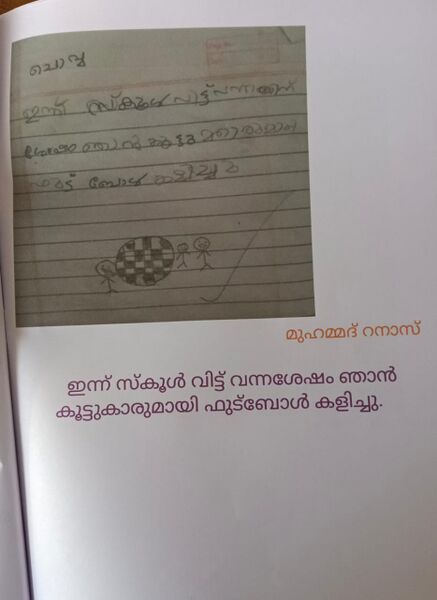 ചൊവ്വ
ഇന്ന് സ്കൂൾ വിട്ട് വന്നതിന്
ശേഷം ഞാൻ കൂട്ടുകാരുമായി
ഫുട്ബോൾ കളിച്ചു
മുഹമ്മദ് റനാസ്
ഇന്ന് സ്കൂൾ വിട്ട് വന്നശേഷം ഞാൻ
കൂട്ടുകാരുമായി ഫുട്ബോൾ കളിച്ചു.